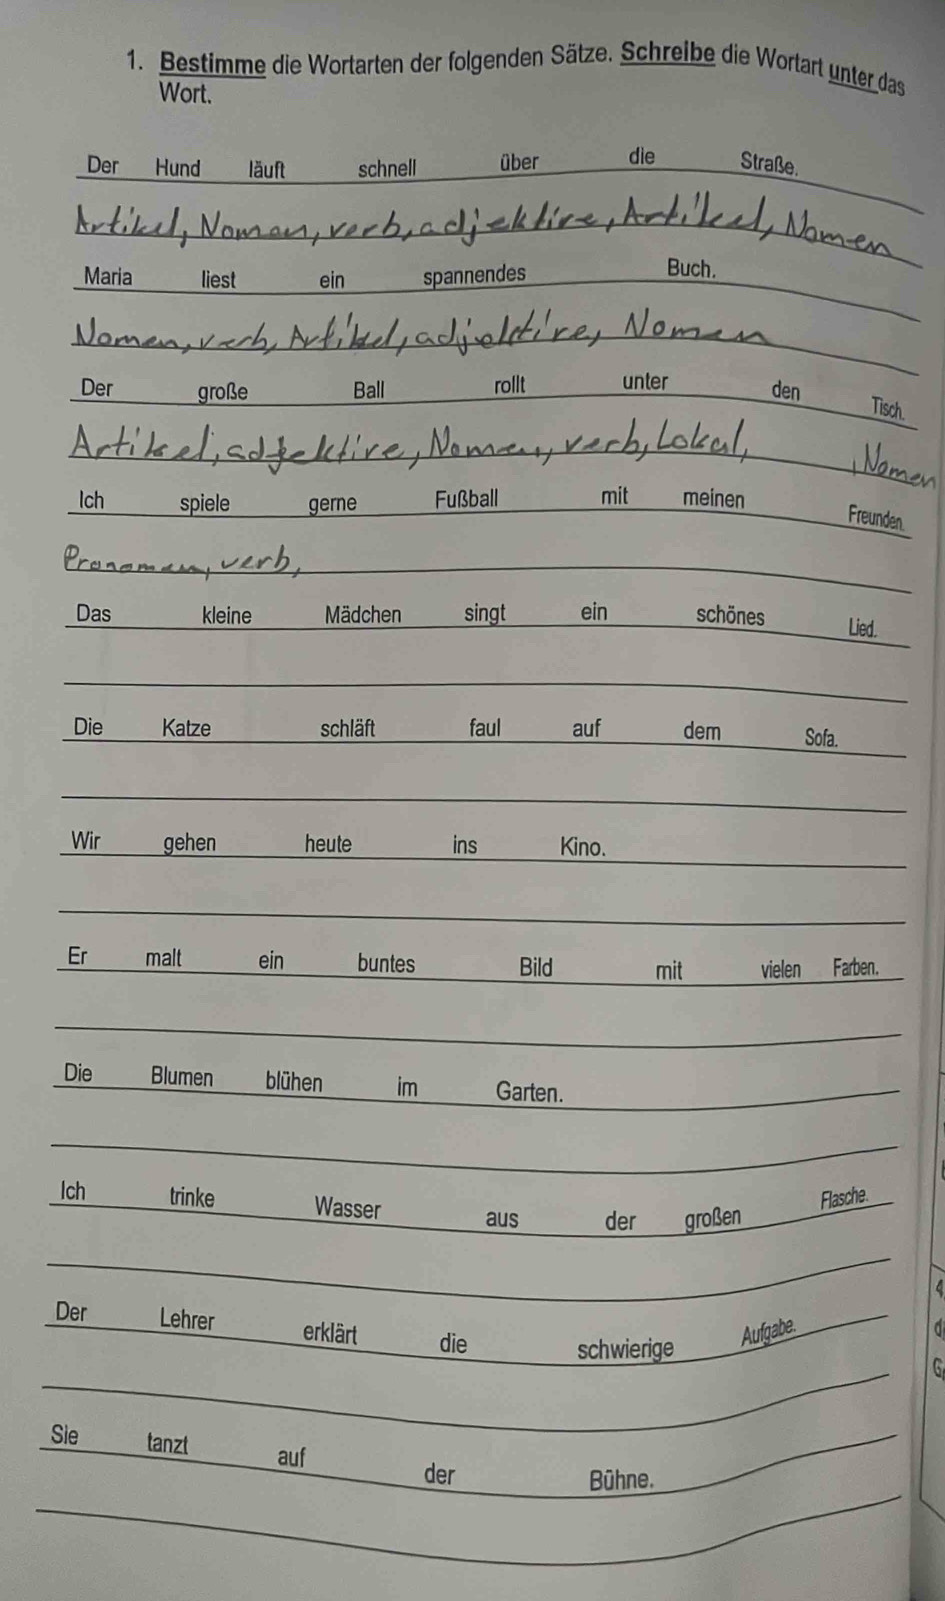 1. Bestimme die Wortarten der folgenden Sätze. Schreibe die Wortart unter das
Wort.
Der Hund läuft schnell über die Straße.
Artikel, Nomen, verb, adjektive, Artikel, Nomen
Maria liest ein spannendes Buch.
Nomen, verb, Artikel, adjektive, Nomen
Der große Ball rollt unter den Tisch.
Artikel, adjektive, Nomen, verb, Lokal, , Nomen
Ich spiele gerne Fußball mit meinen Freunden.
Pronomen, verb,
Das kleine Mädchen singt ein schönes Lied.
Die Katze schläft faul auf dem Sofa.
Wir gehen heute ins Kino.
Er malt ein buntes Bild mit vielen Farben.
Die Blumen blühen im Garten.
Ich trinke Wasser aus der großen Flasche.
Der Lehrer erklärt die schwierige Aufgabe.
Sie tanzt auf der Bühne.